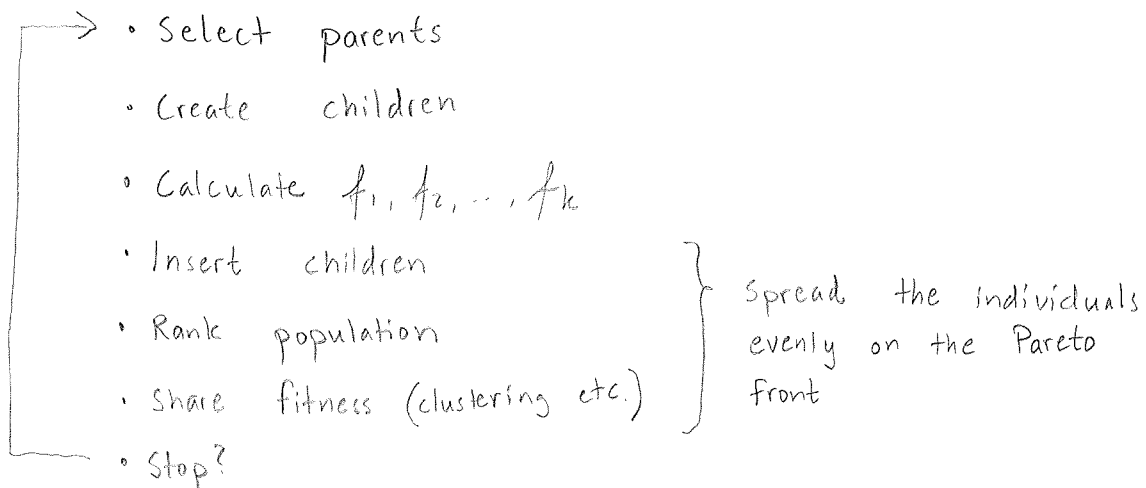 • Select parents
• Create children
• Calculate f₁, f₂, ..., fₖ
• Insert children
• Rank population
• Share fitness (clustering etc.)
• Stop?
Spread the individuals
evenly on the Pareto
front